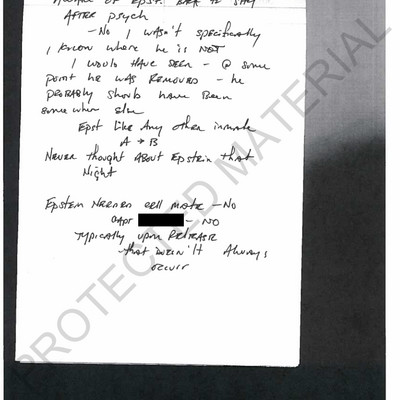 AFTER psych
- No I wasn't specifically
I know where he is NOT
I would have seen - @ some
point he was removed - he
probably should have been
somewhere else
Epst like any other inmate
A → B
Never thought about Epstein that
Night
Epstein needed cell mate - No
Capt - NO
typically upon Release
that doesn't always
occur
PROTECTED MATERIAL